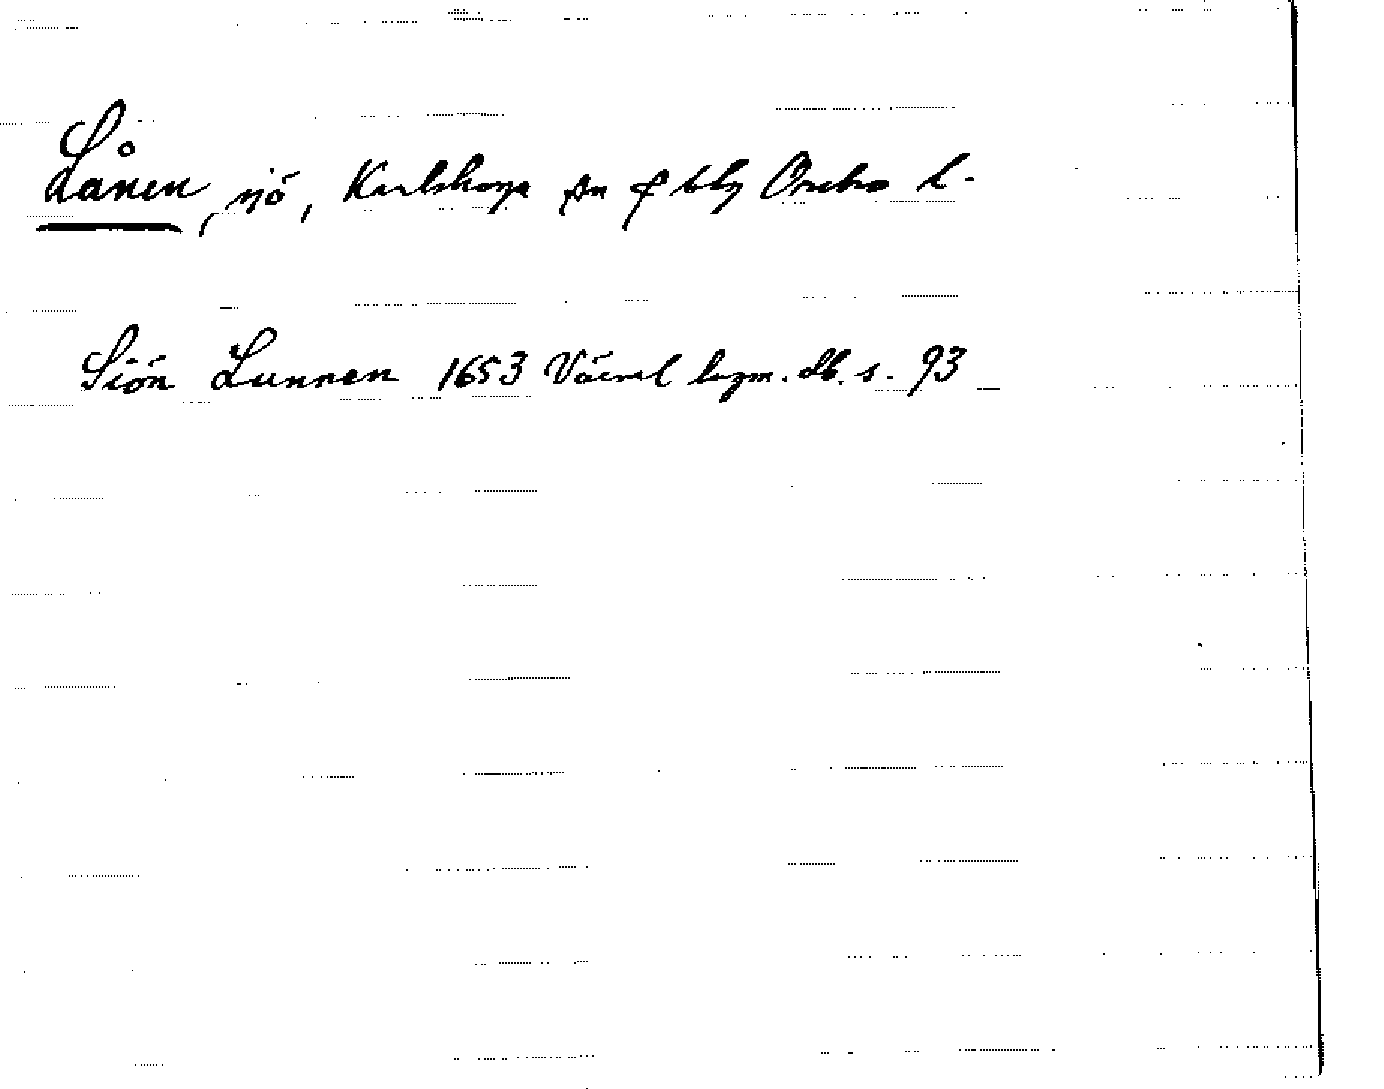 Lånen, sjö, Karlskoga sn o bsl Örebro l.
Siön Lunnen 1653 Väsrml bergm. db. s. 93